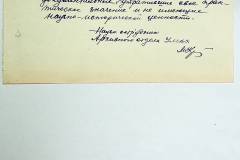 документальные утратившие свое прак-
тическое значение и не имеющих
научно-исторической ценности.
Научн. сотрудник
Архивного отдела